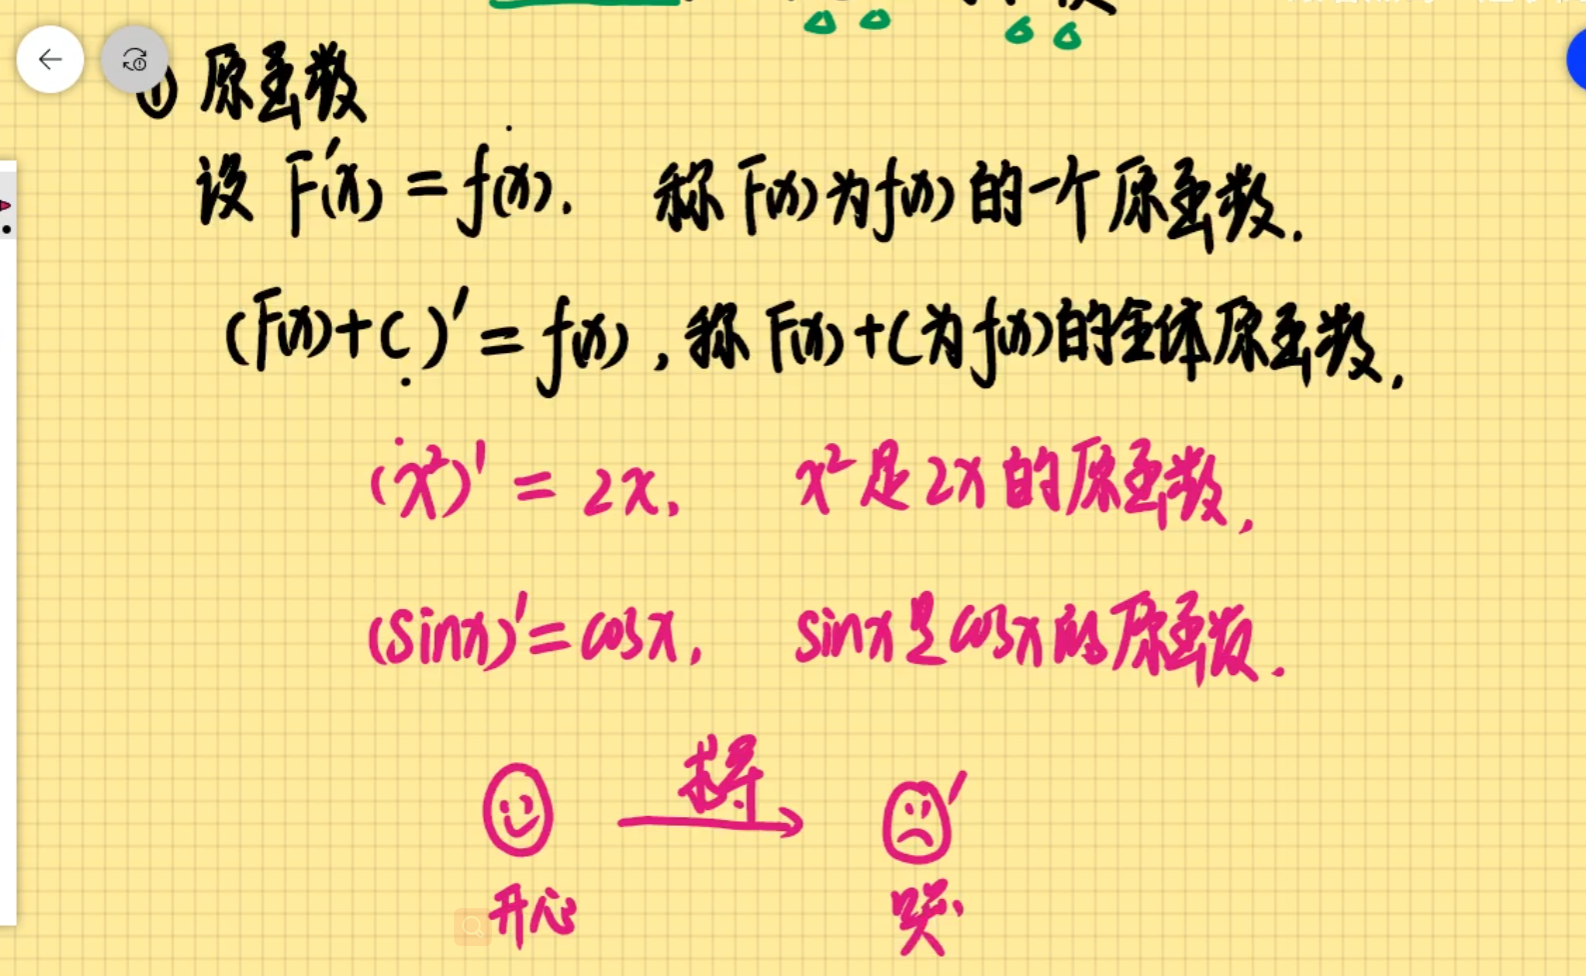 ① 原函数
设 F'(x) = f(x). 称 F(x) 为 f(x) 的一个原函数.
(F(x)+C)' = f(x), 称 F(x)+C 为 f(x) 的全体原函数.
(x²)' = 2x, x² 是 2x 的原函数,
(sinx)' = cosx, sinx 是 cosx 的原函数.
求导
开心 哭